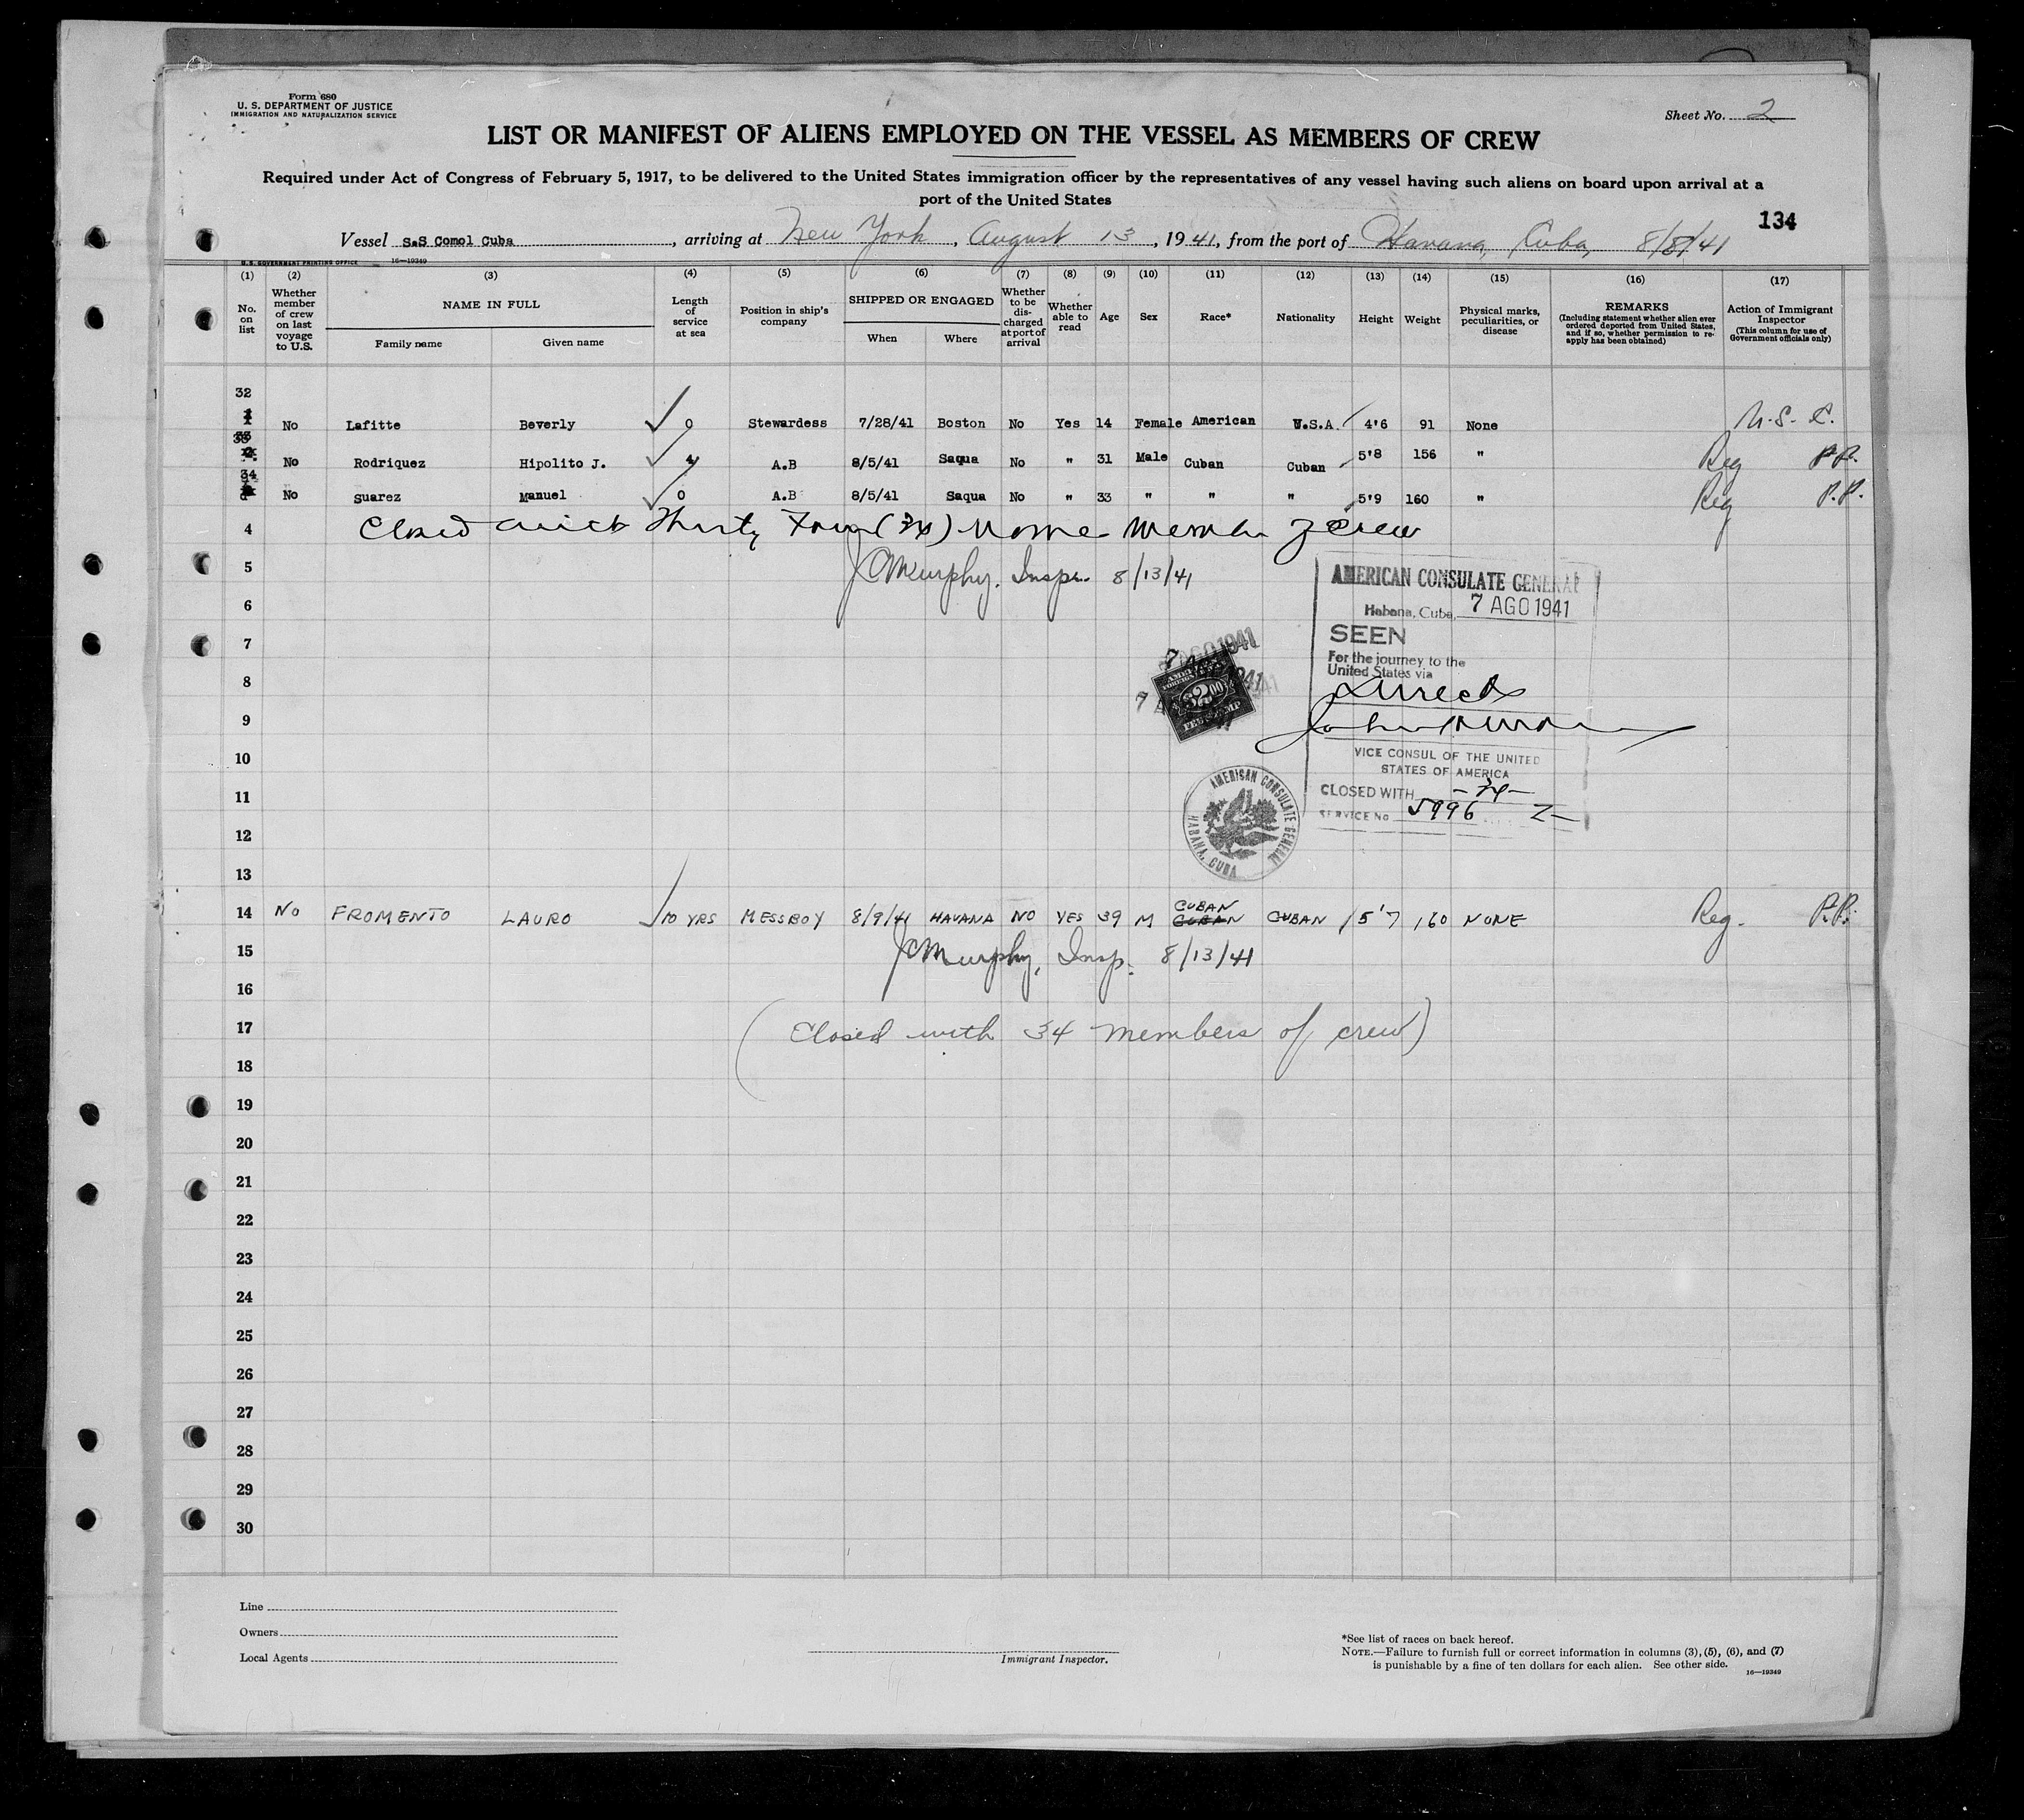 Form 680
U. S. DEPARTMENT OF JUSTICE
IMMIGRATION AND NATURALIZATION SERVICE
Sheet No. 2
LIST OR MANIFEST OF ALIENS EMPLOYED ON THE VESSEL AS MEMBERS OF CREW
Required under Act of Congress of February 5, 1917, to be delivered to the United States immigration officer by the representatives of any vessel having such aliens on board upon arrival at a
port of the United States
134
Vessel S.S Comol Cuba, arriving at New York, August 13, 1941, from the port of Havana, Cuba, 8/8/41
U. S. GOVERNMENT PRINTING OFFICE 16—19349
(1) (2) (3) (4) (5) (6) (7) (8) (9) (10) (11) (12) (13) (14) (15) (16) (17)
No. on list
Whether member of crew on last voyage to U.S.
NAME IN FULL
Family name
Given name
Length of service at sea
Position in ship's company
SHIPPED OR ENGAGED
When
Where
Whether to be discharged at port of arrival
Whether able to read
Age
Sex
Race*
Nationality
Height
Weight
Physical marks, peculiarities, or disease
REMARKS
(Including statement whether alien ever ordered deported from United States, and if so, whether permission to reapply has been obtained)
Action of Immigrant Inspector
(This column for use of Government officials only)
32 No Lafitte Beverly 0 Stewardess 7/28/41 Boston No Yes 14 Female American U.S.A. 4'6 91 None U.S.C.
33 No Rodriquez Hipolito J. 4 A.B 8/5/41 Saqua No " 31 Male Cuban Cuban 5'8 156 " Reg P.P.
34 No Suarez Manuel 0 A.B 8/5/41 Saqua No " 33 " " " 5'9 160 " Reg P.P.
4 Closed with Thirty Four (34) Name Member of crew
5 JCMurphy. Inspr. 8/13/41
6
7
8
9
10
11
12
13
AMERICAN CONSULATE GENERAL
Habana, Cuba, 7 AGO 1941
SEEN
For the journey to the
United States via
Direct
VICE CONSUL OF THE UNITED
STATES OF AMERICA
CLOSED WITH -34-
SERVICE No 5996
7 AGO 1941
AMERICAN
FOREIGN SERVICE
$2.00
FEE STAMP
AMERICAN CONSULATE GENERAL
HABANA, CUBA
14 No FROMENTO LAURO 10 YRS MESSBOY 8/9/41 HAVANA NO YES 39 M CUBAN CUBAN CUBAN 5'7 160 NONE Reg. P.P.
15 JCMurphy, Insp. 8/13/41
16
17 (Closed with 34 members of crew)
18
19
20
21
22
23
24
25
26
27
28
29
30
Line
Owners
Local Agents
Immigrant Inspector.
*See list of races on back hereof.
NOTE.—Failure to furnish full or correct information in columns (3), (5), (6), and (7)
is punishable by a fine of ten dollars for each alien. See other side.
16—19349